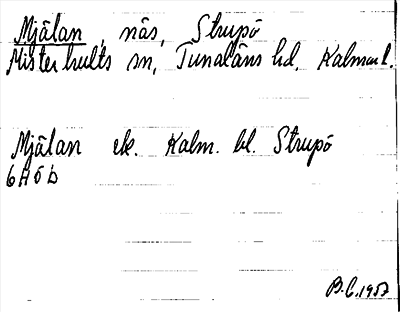 Mjälan, näs, Strupö
Misterhults sn, Tunaläns hd, Kalmar l.
Mjälan ek. Kalm. bl. Strupö
6H6b
B.C. 1957